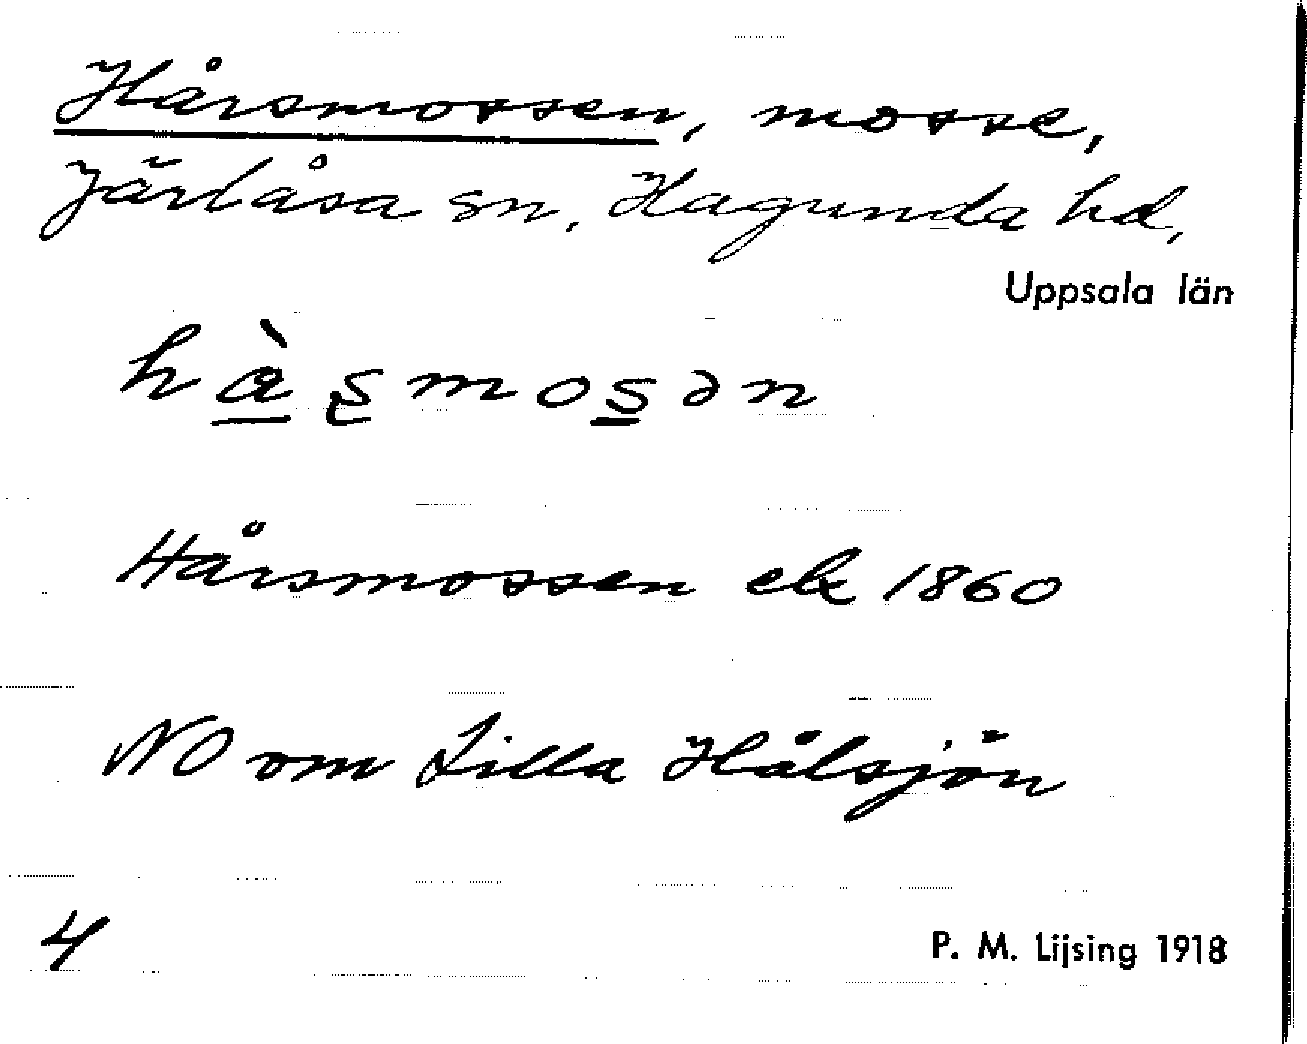 Hårsmossen, mosse,
Järlåsa sn, Hagunda hd,
Uppsala län
Hårsmossen ek 1860
NO om Lilla Hålsjön
4
P. M. Lijsing 1918